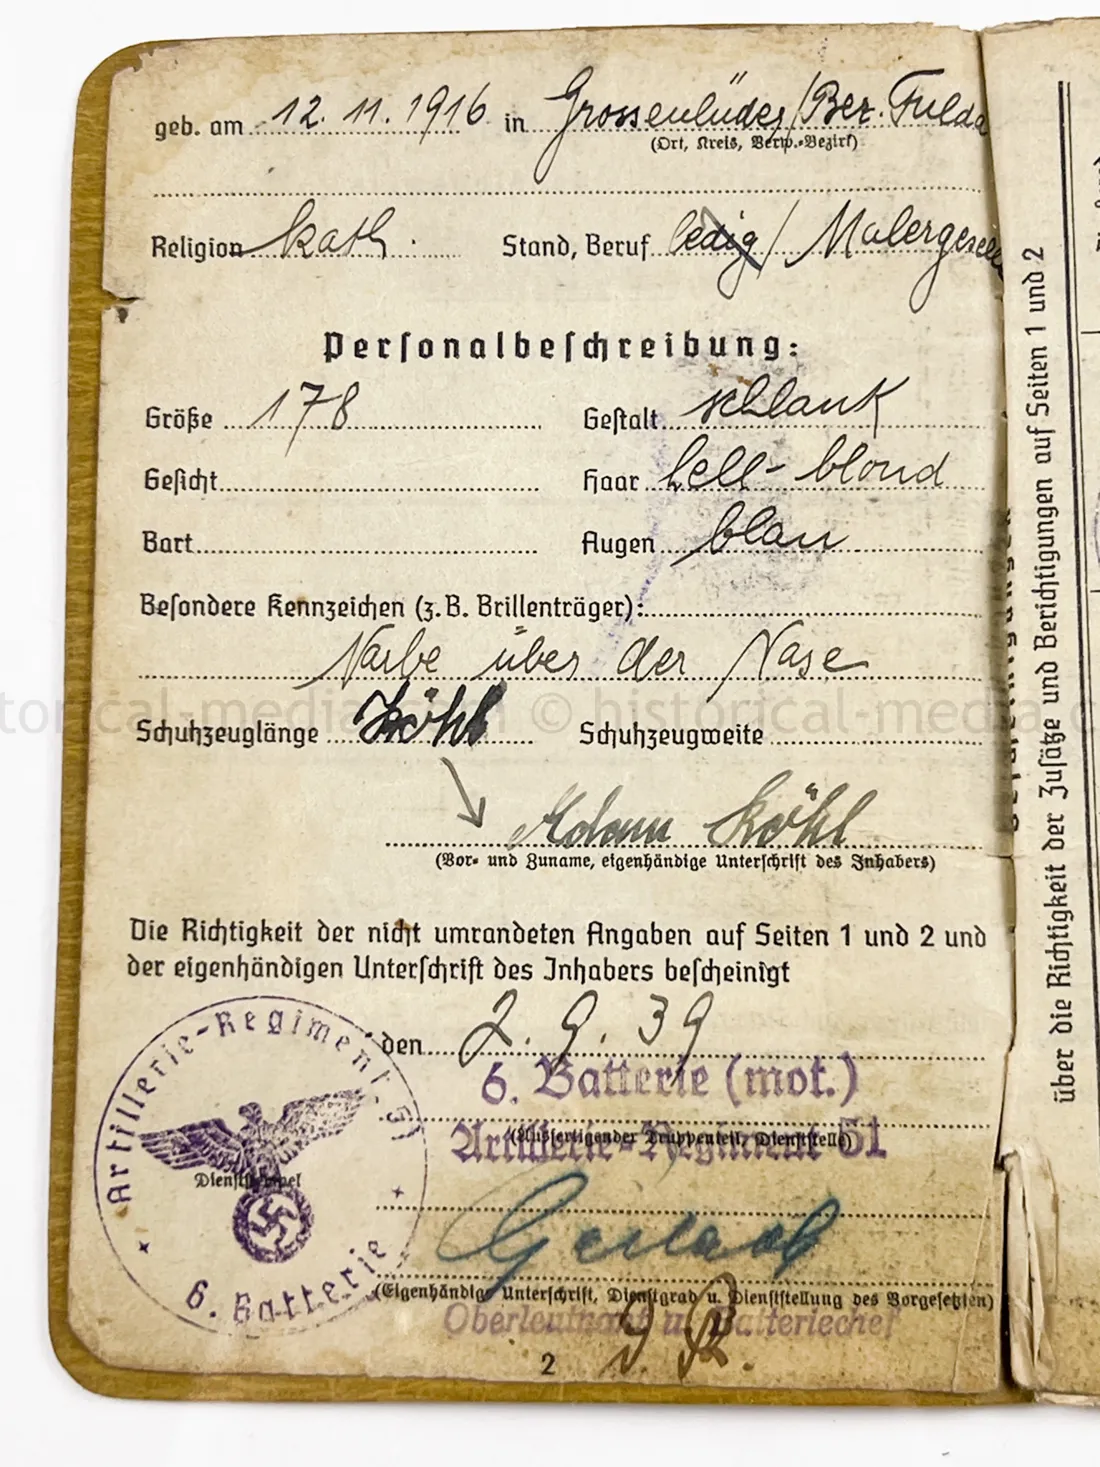 geb. am 12. 11. 1916 in Grossenlüder/Bez. Fulda
(Ort, Kreis, Verw.-Bezirk)
Religion kath. Stand, Beruf ledig / Malergeselle
Personalbeschreibung:
Größe 178 Gestalt schlank
Gesicht Haar hell-blond
Bart Augen blau
Besondere Kennzeichen (z. B. Brillenträger):
Narbe über der Nase
historical-media.com © historical-media.c
Schuhzeuglänge Köhl Schuhzeugweite
Adam Köhl
(Vor- und Zuname, eigenhändige Unterschrift des Inhabers)
Die Richtigkeit der nicht umrandeten Angaben auf Seiten 1 und 2 und
der eigenhändigen Unterschrift des Inhabers bescheinigt
den 2. 9. 39
6. Batterie (mot.)
(Ausfertigender Truppenteil, Dienststelle)
Artillerie-Regiment 51
Artillerie-Regiment 51
Dienststempel
6. Batterie
Gerlach
(Eigenhändige Unterschrift, Dienstgrad u. Dienststellung des Vorgesetzten)
Oberleutnant u. Batteriechef
2
über die Richtigkeit der Zusätze und Berichtigungen auf Seiten 1 und 2